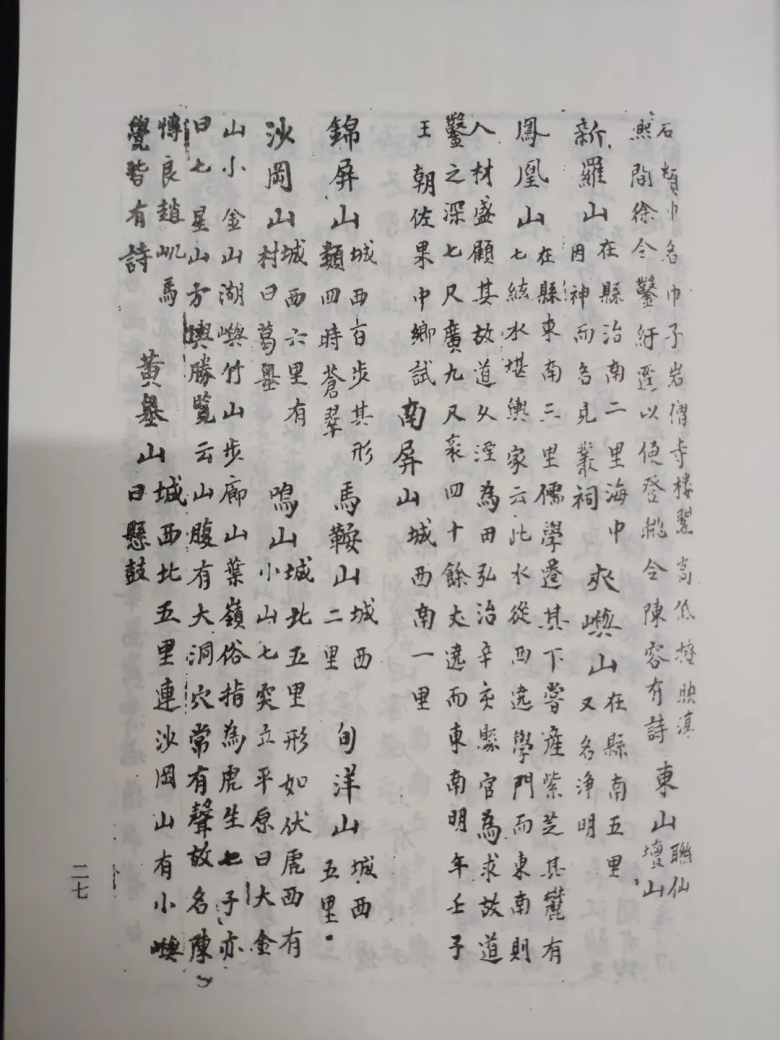 石贊巾名巾子岩僧寺樓翠高低掩映淳
熈間徐令鑿紆遥以便登眺令陳容有詩
東山
聯仙
壇山
新羅山
在縣治南二里海中
因神而名見叢祠
夾嶼山
在縣南五里
又名浄明
鳳凰山
在縣東南三里儒學還其下嘗産紫芝其麓有
七絃水堪輿家云此水從西遶學門而東南則
人材盛顧其故道乆湮為田弘治辛亥縣官為求故道
鑿之深七尺廣九尺袤四十餘丈遶而東南明年壬子
王朝佐果中鄉試
南屏山城西南一里
錦屏山
城西百步其形
類四時蒼翠
馬鞍山
城西
二里
旬洋山
城西
五里
沙岡山
城西六里有
村曰葛壘
鳴山
城北五里形如伏虎西有
小山七突立平原曰大金
山小金山湖嶼竹山步廊山葉嶺俗指為虎生七子亦
曰七星山方輿勝覽云山腹有大洞穴常有聲故名陳
愽良趙屼馬
覺皆有詩
黄壘山
城西北五里連沙岡山有小嶼
曰懸鼓
二七